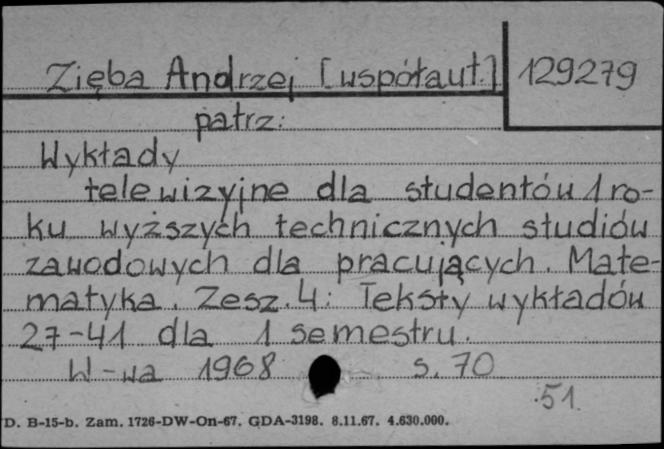 Zięba Andrzej [współaut.] 129279
patrz:
Wykłady
telewizyjne dla studentów 1 ro-
ku wyższych technicznych studiów
zawodowych dla pracujących. Mate-
matyka. Zesz. 4: Teksty wykładów
27-41 dla 1 semestru.
W-wa 1968 s. 70
51
D. B-15-b. Zam. 1726-DW-On-67. GDA-3198. 8.11.67. 4.630.000.